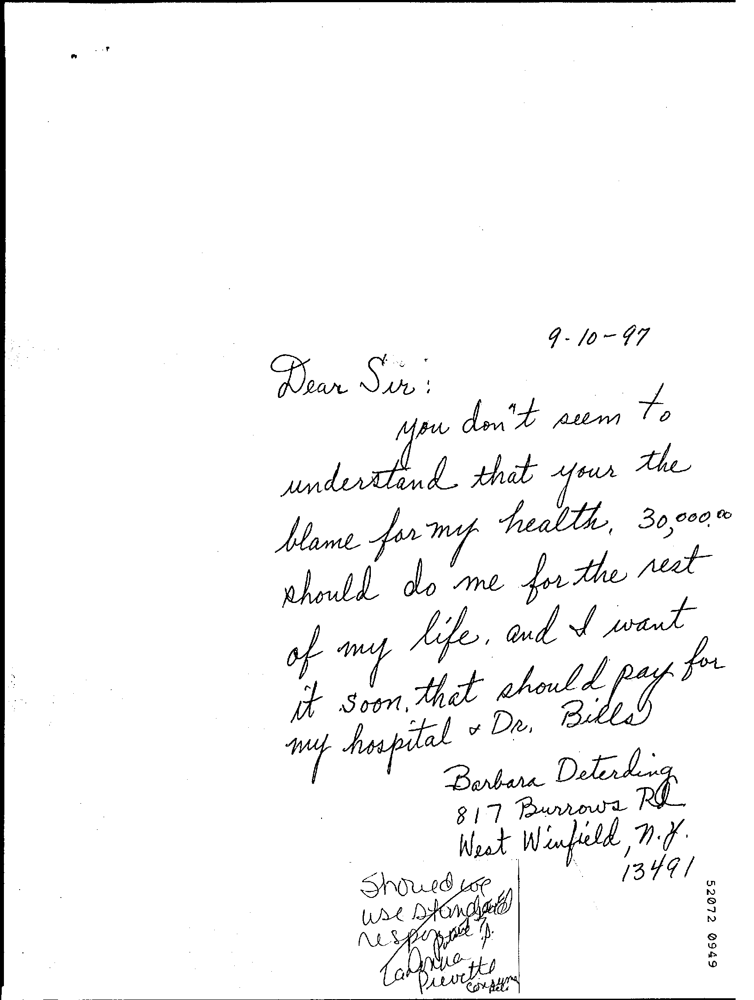 9-10-97
Dear Sir:
you don"t seem to
understand that your the
blame for my health. 30,000.00
should do me for the rest
of my life. and I want
it soon. that should pay for
my hospital & Dr. Bills
Barbara Deterding
817 Burrows Rd
West Winfield, N.Y.
13491
Should we
use standard
response
LaDonna
Prevette
52072 0949